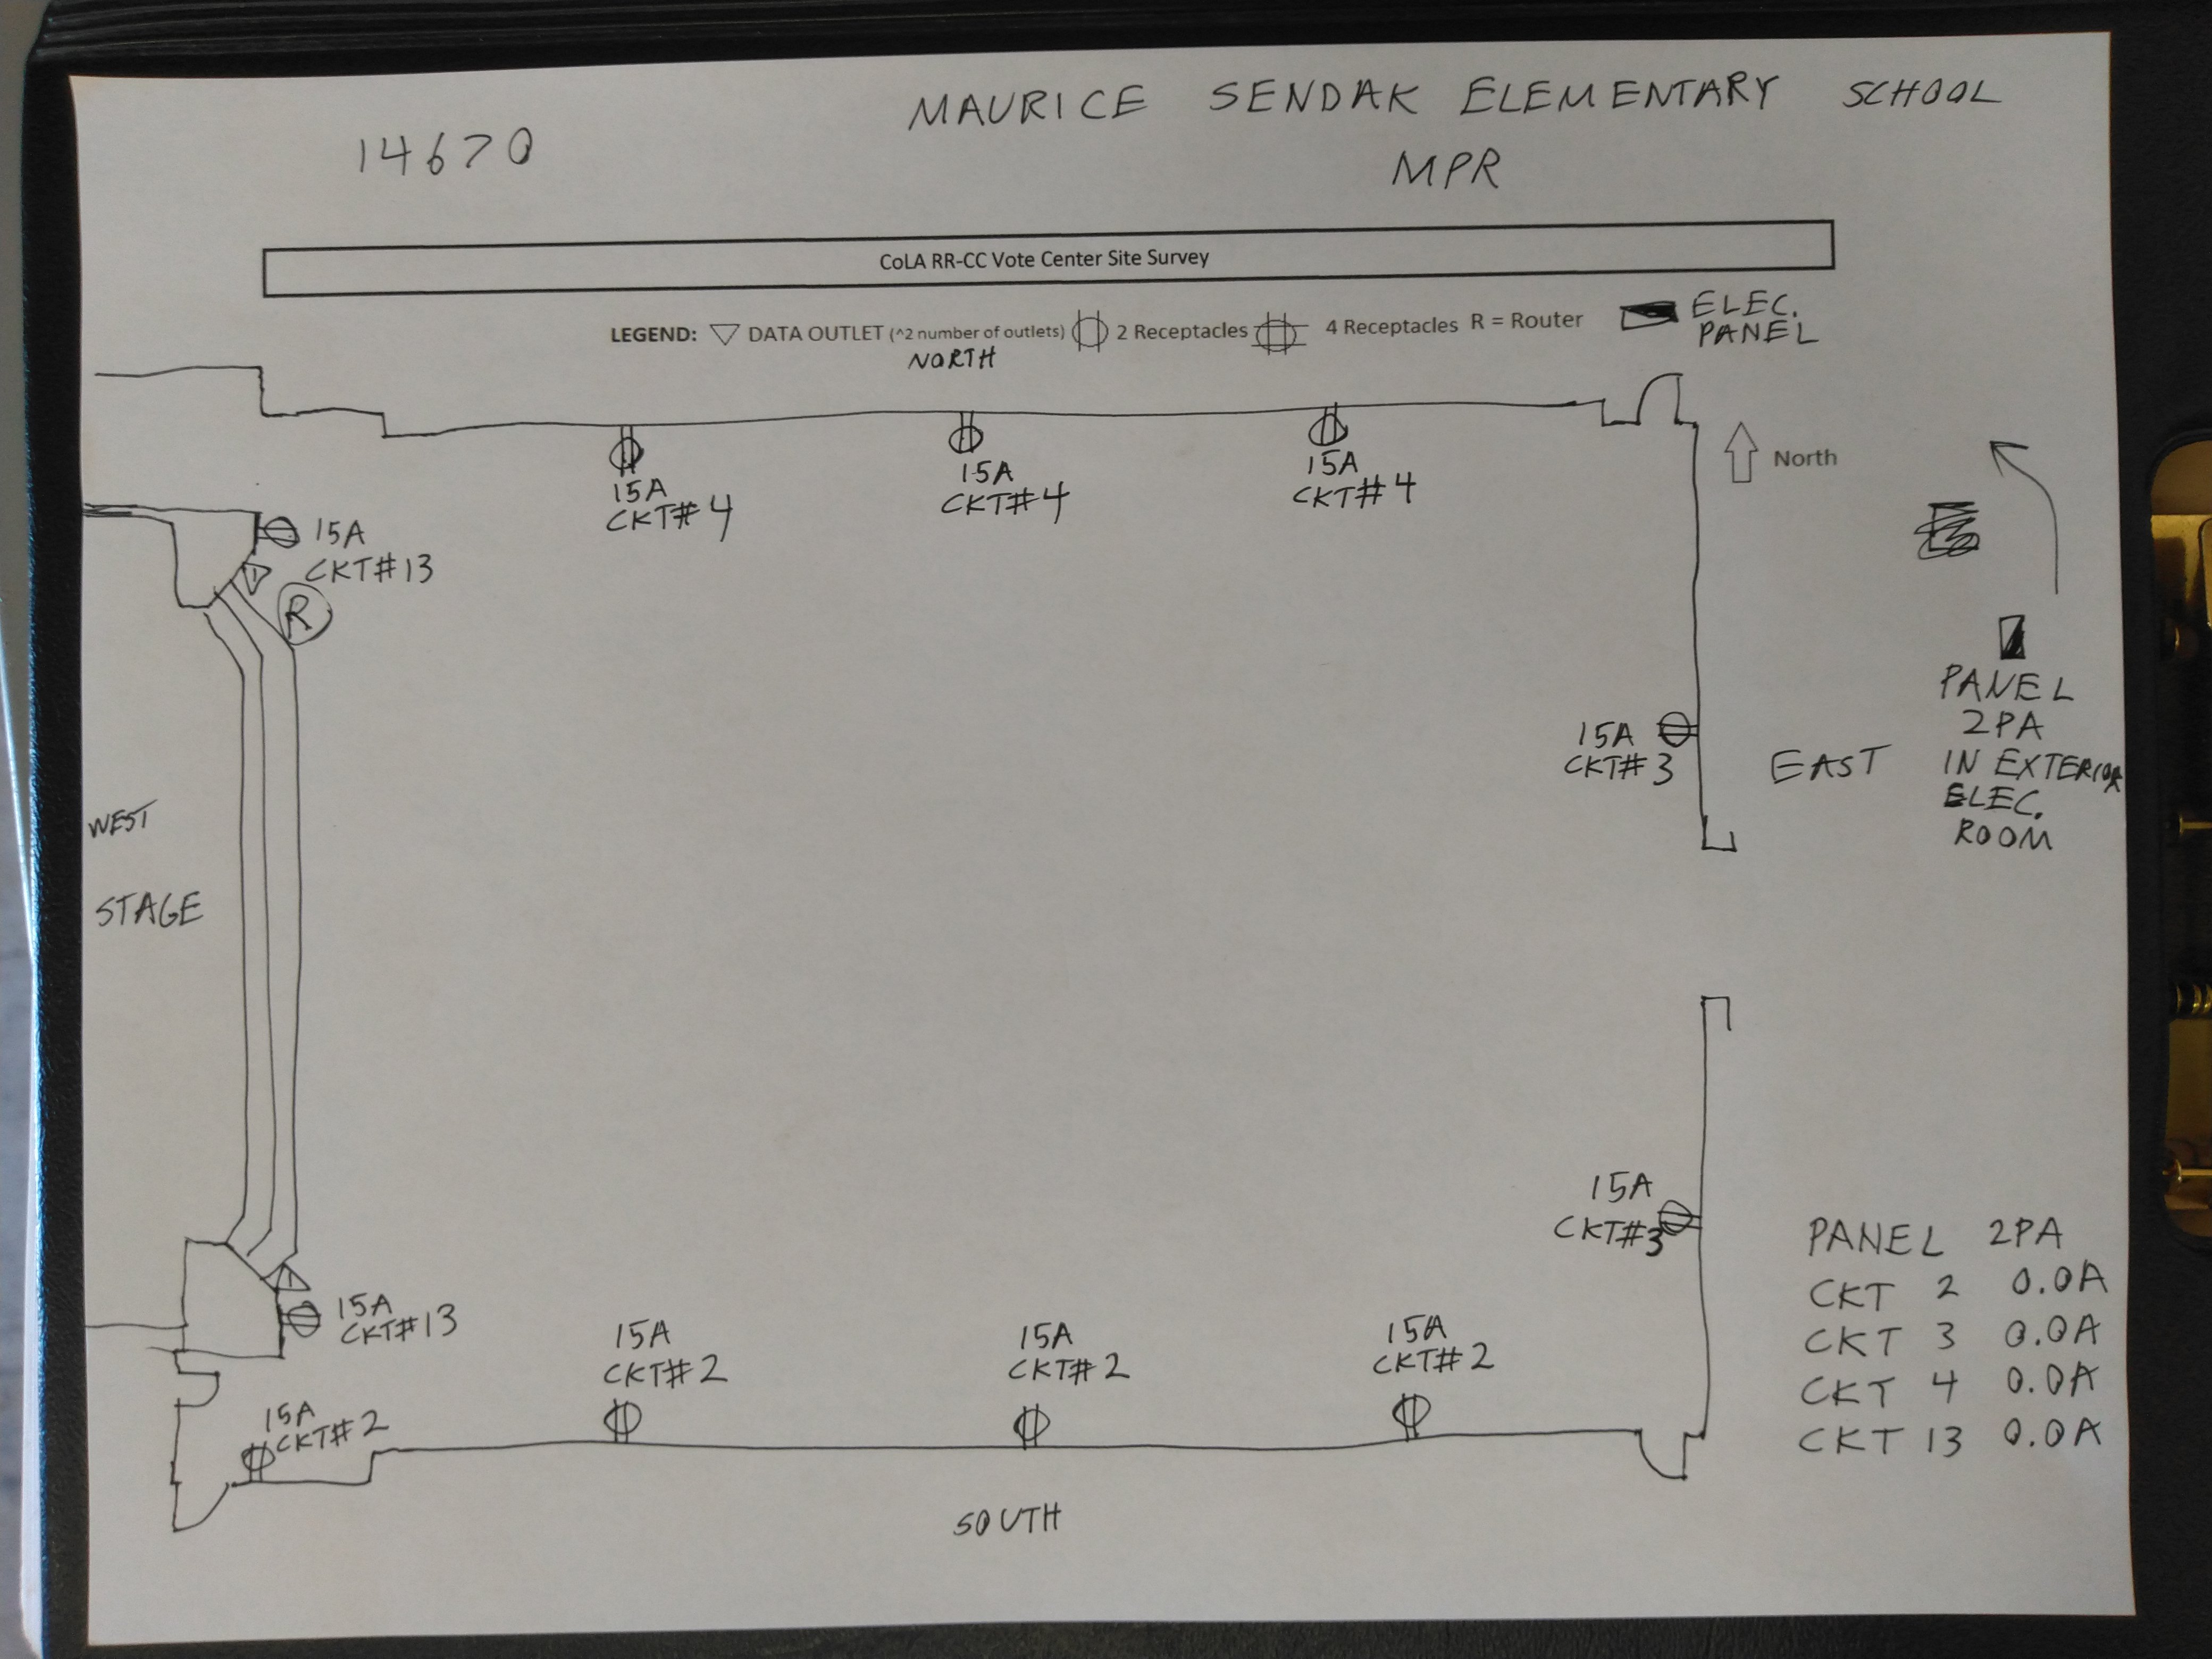 MAURICE SENDAK ELEMENTARY SCHOOL
14670
MPR
CoLA RR-CC Vote Center Site Survey
LEGEND: ▽ DATA OUTLET (^2 number of outlets) 2 Receptacles 4 Receptacles R = Router ELEC. PANEL
NORTH
North
15A
CKT#4
15A
CKT#4
15A
CKT#4
15A
CKT#13
1
R
15A
CKT#3
EAST
PANEL
2PA
IN EXTERIOR
ELEC.
ROOM
WEST
STAGE
15A
CKT#3
1
15A
CKT#13
15A
CKT#2
15A
CKT#2
15A
CKT#2
15A
CKT#2
PANEL 2PA
CKT 2 0.0A
CKT 3 0.0A
CKT 4 0.0A
CKT 13 0.0A
SOUTH